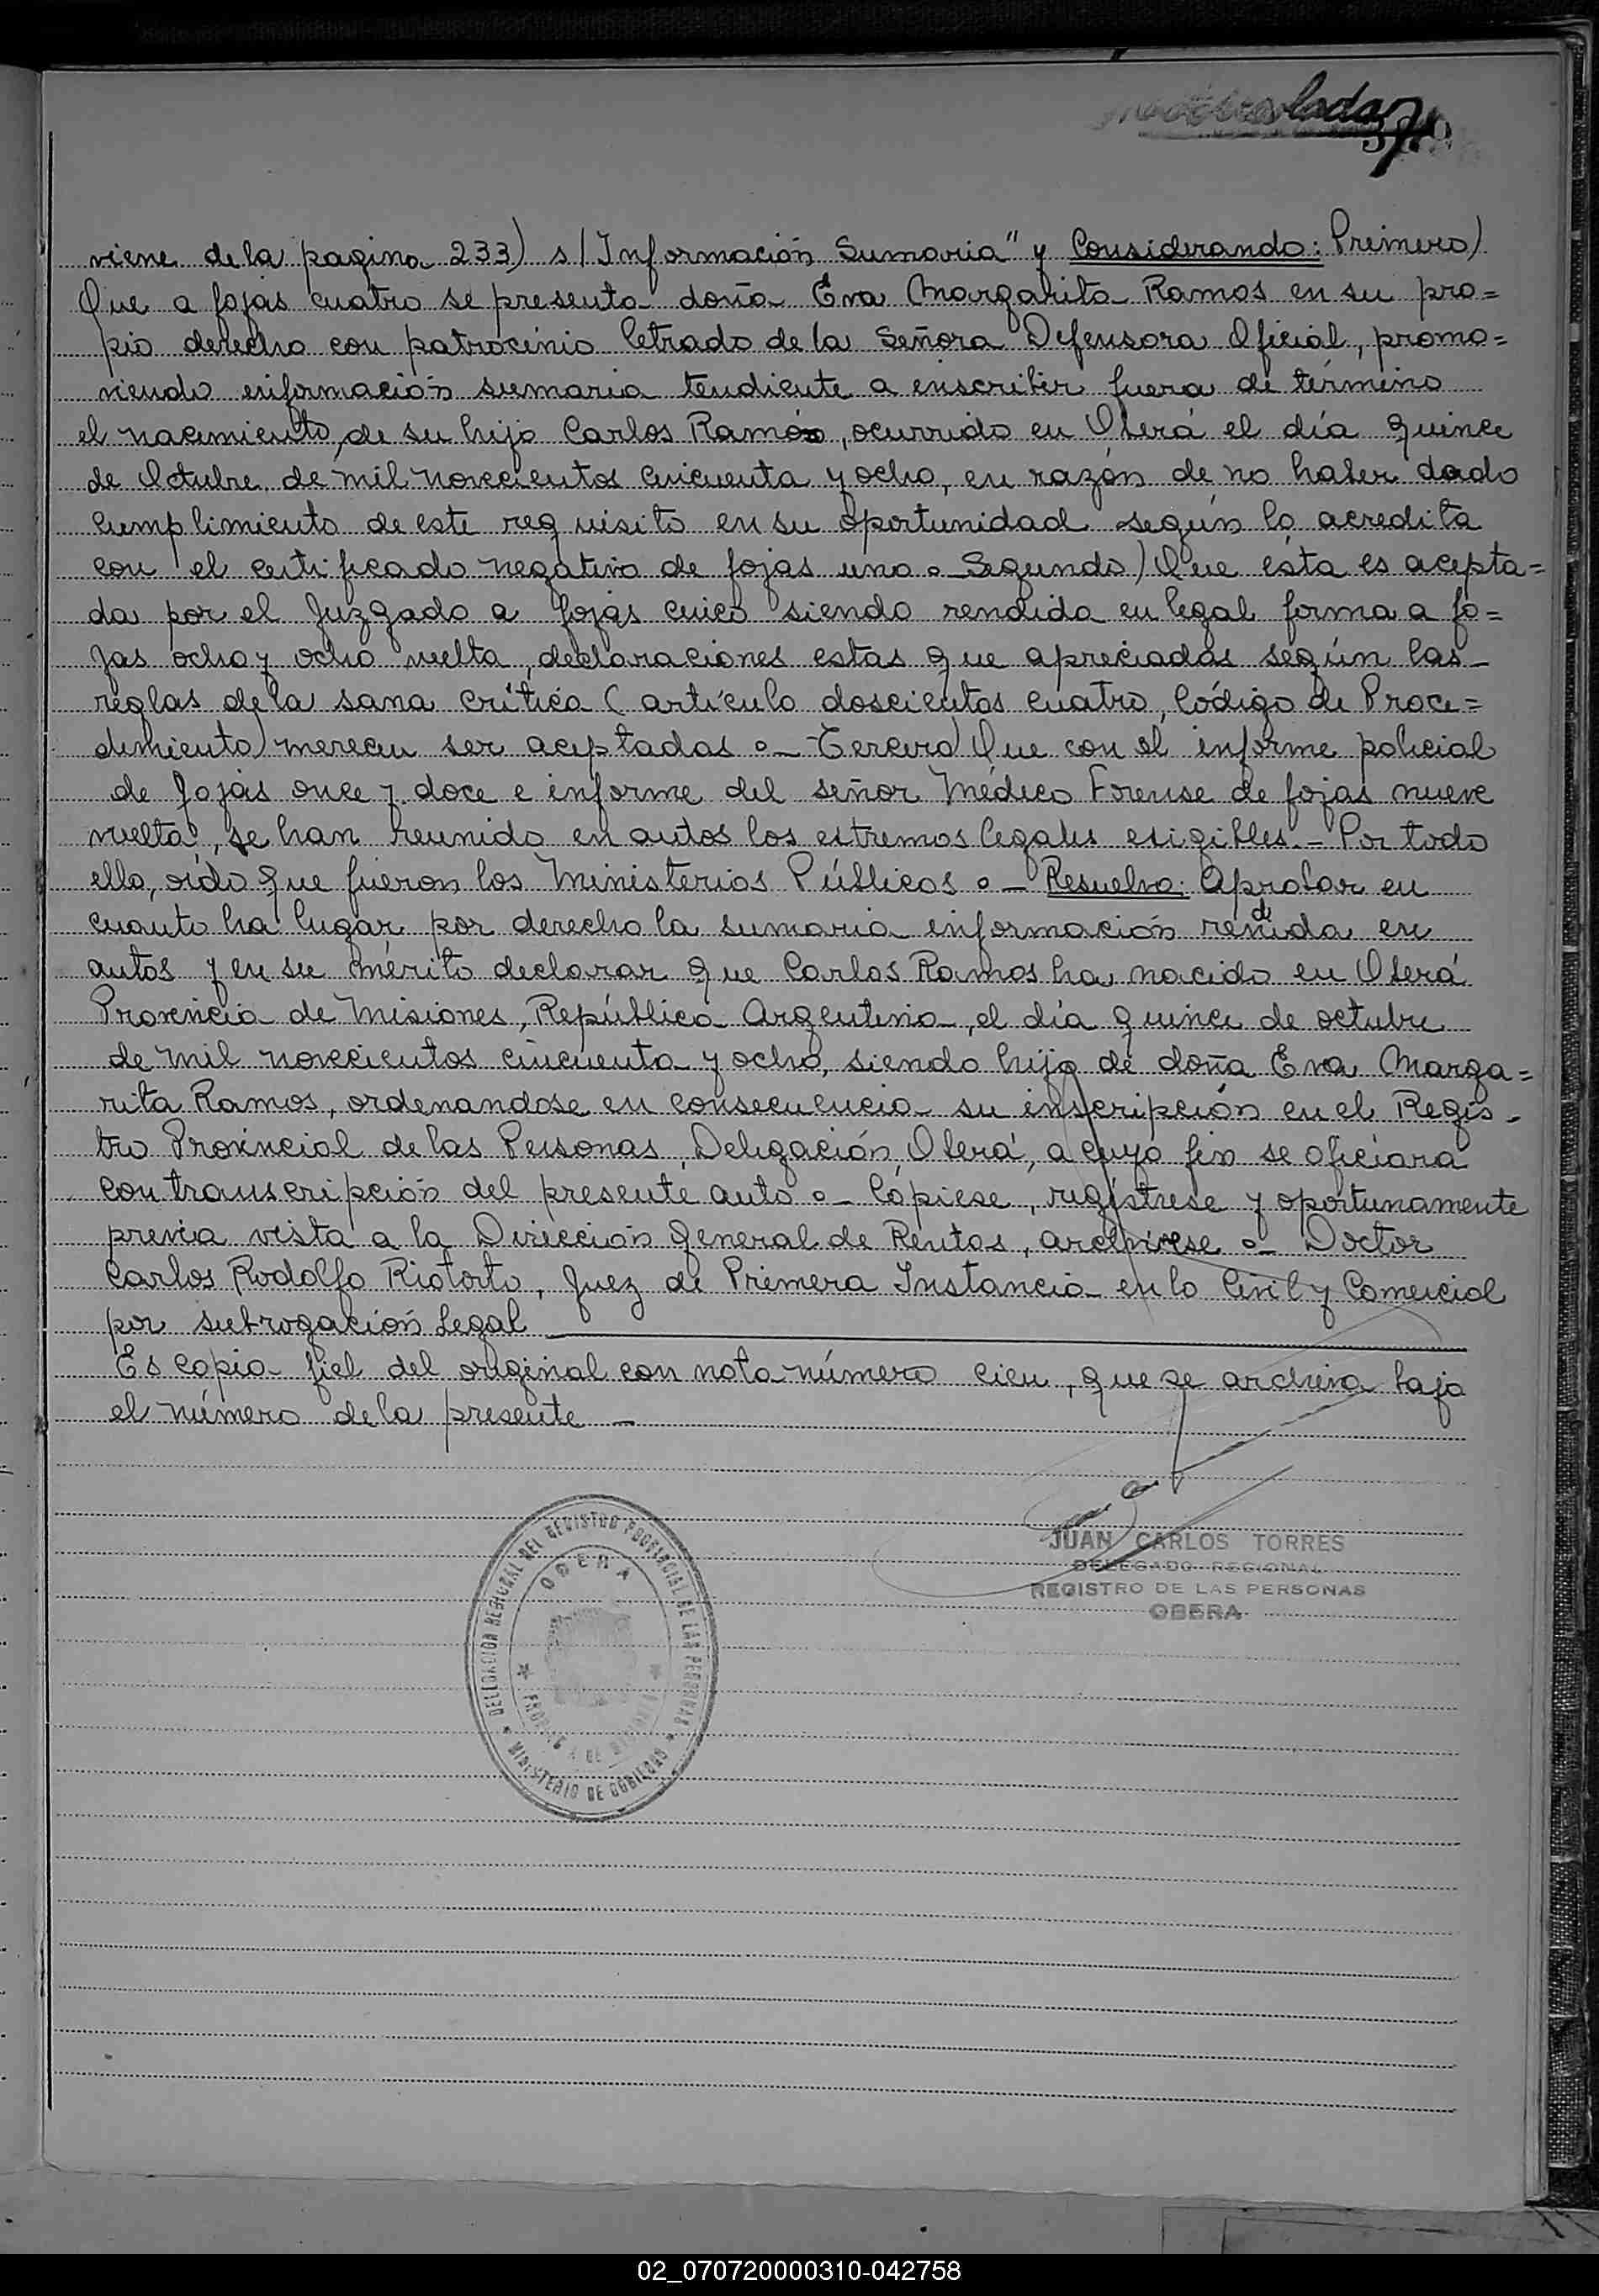 viene de la pagina 233) s/Información Sumaria" y Considerando: Primero)
Que a fojas cuatro se presenta doña Eva Margarita Ramos en su pro=
pio derecho con patrocinio letrado de la Señora Defensora Oficial, promo=
viendo información sumaria tendiente a inscribir fuera de término
el nacimiento, de su hijo Carlos Ramos, ocurrido en Oberá el día quince
de Octubre de mil novecientos cincuenta y ocho, en razón de no haber dado
cumplimiento de este requisito en su oportunidad según lo acredita
con el certificado negativo de fojas uno.- Segundo) Que ésta es acepta=
da por el Juzgado a fojas cinco siendo rendida en legal forma a fo=
jas ocho y ocho vuelta, declaraciones estas que apreciadas según las
reglas de la sana crítica (artículo doscientos cuatro, Código de Proce=
dimiento) merecen ser aceptadas.- Tercero) Que con el informe policial
de fojas once y doce e informe del señor Médico Forense de fojas nueve
vuelta, se han reunido en autos los extremos legales exigibles.- Por todo
ello, oído que fueron los Ministerios Públicos.- Resuelvo: Aprobar en
cuanto ha lugar por derecho la sumaria información rendida en
autos y en su mérito declarar que Carlos Ramos ha nacido en Oberá
Provincia de Misiones, República Argentina, el día quince de octubre
de mil novecientos cincuenta y ocho, siendo hijo de doña Eva Marga=
rita Ramos, ordenandose en consecuencia su inscripción en el Regis-
tro Provincial de las Personas, Delegación, Oberá, a cuyo fin se oficiará
con transcripción del presente auto.- Cópiese, regístrese y oportunamente
previa vista a la Dirección General de Rentas, archivese.- Doctor
Carlos Rodolfo Riotorto, Juez de Primera Instancia en lo Civil y Comercial
por subrogación Legal
Es copia fiel del original con nota número cien, que se archiva bajo
el número de la presente -
JUAN CARLOS TORRES
DELEGADO REGIONAL
REGISTRO DE LAS PERSONAS
OBERA
DELEGACION REGIONAL DEL REGISTRO PROVINCIAL DE LAS PERSONAS
OBERA
MINISTERIO DE GOBIERNO
02_070720000310-042758